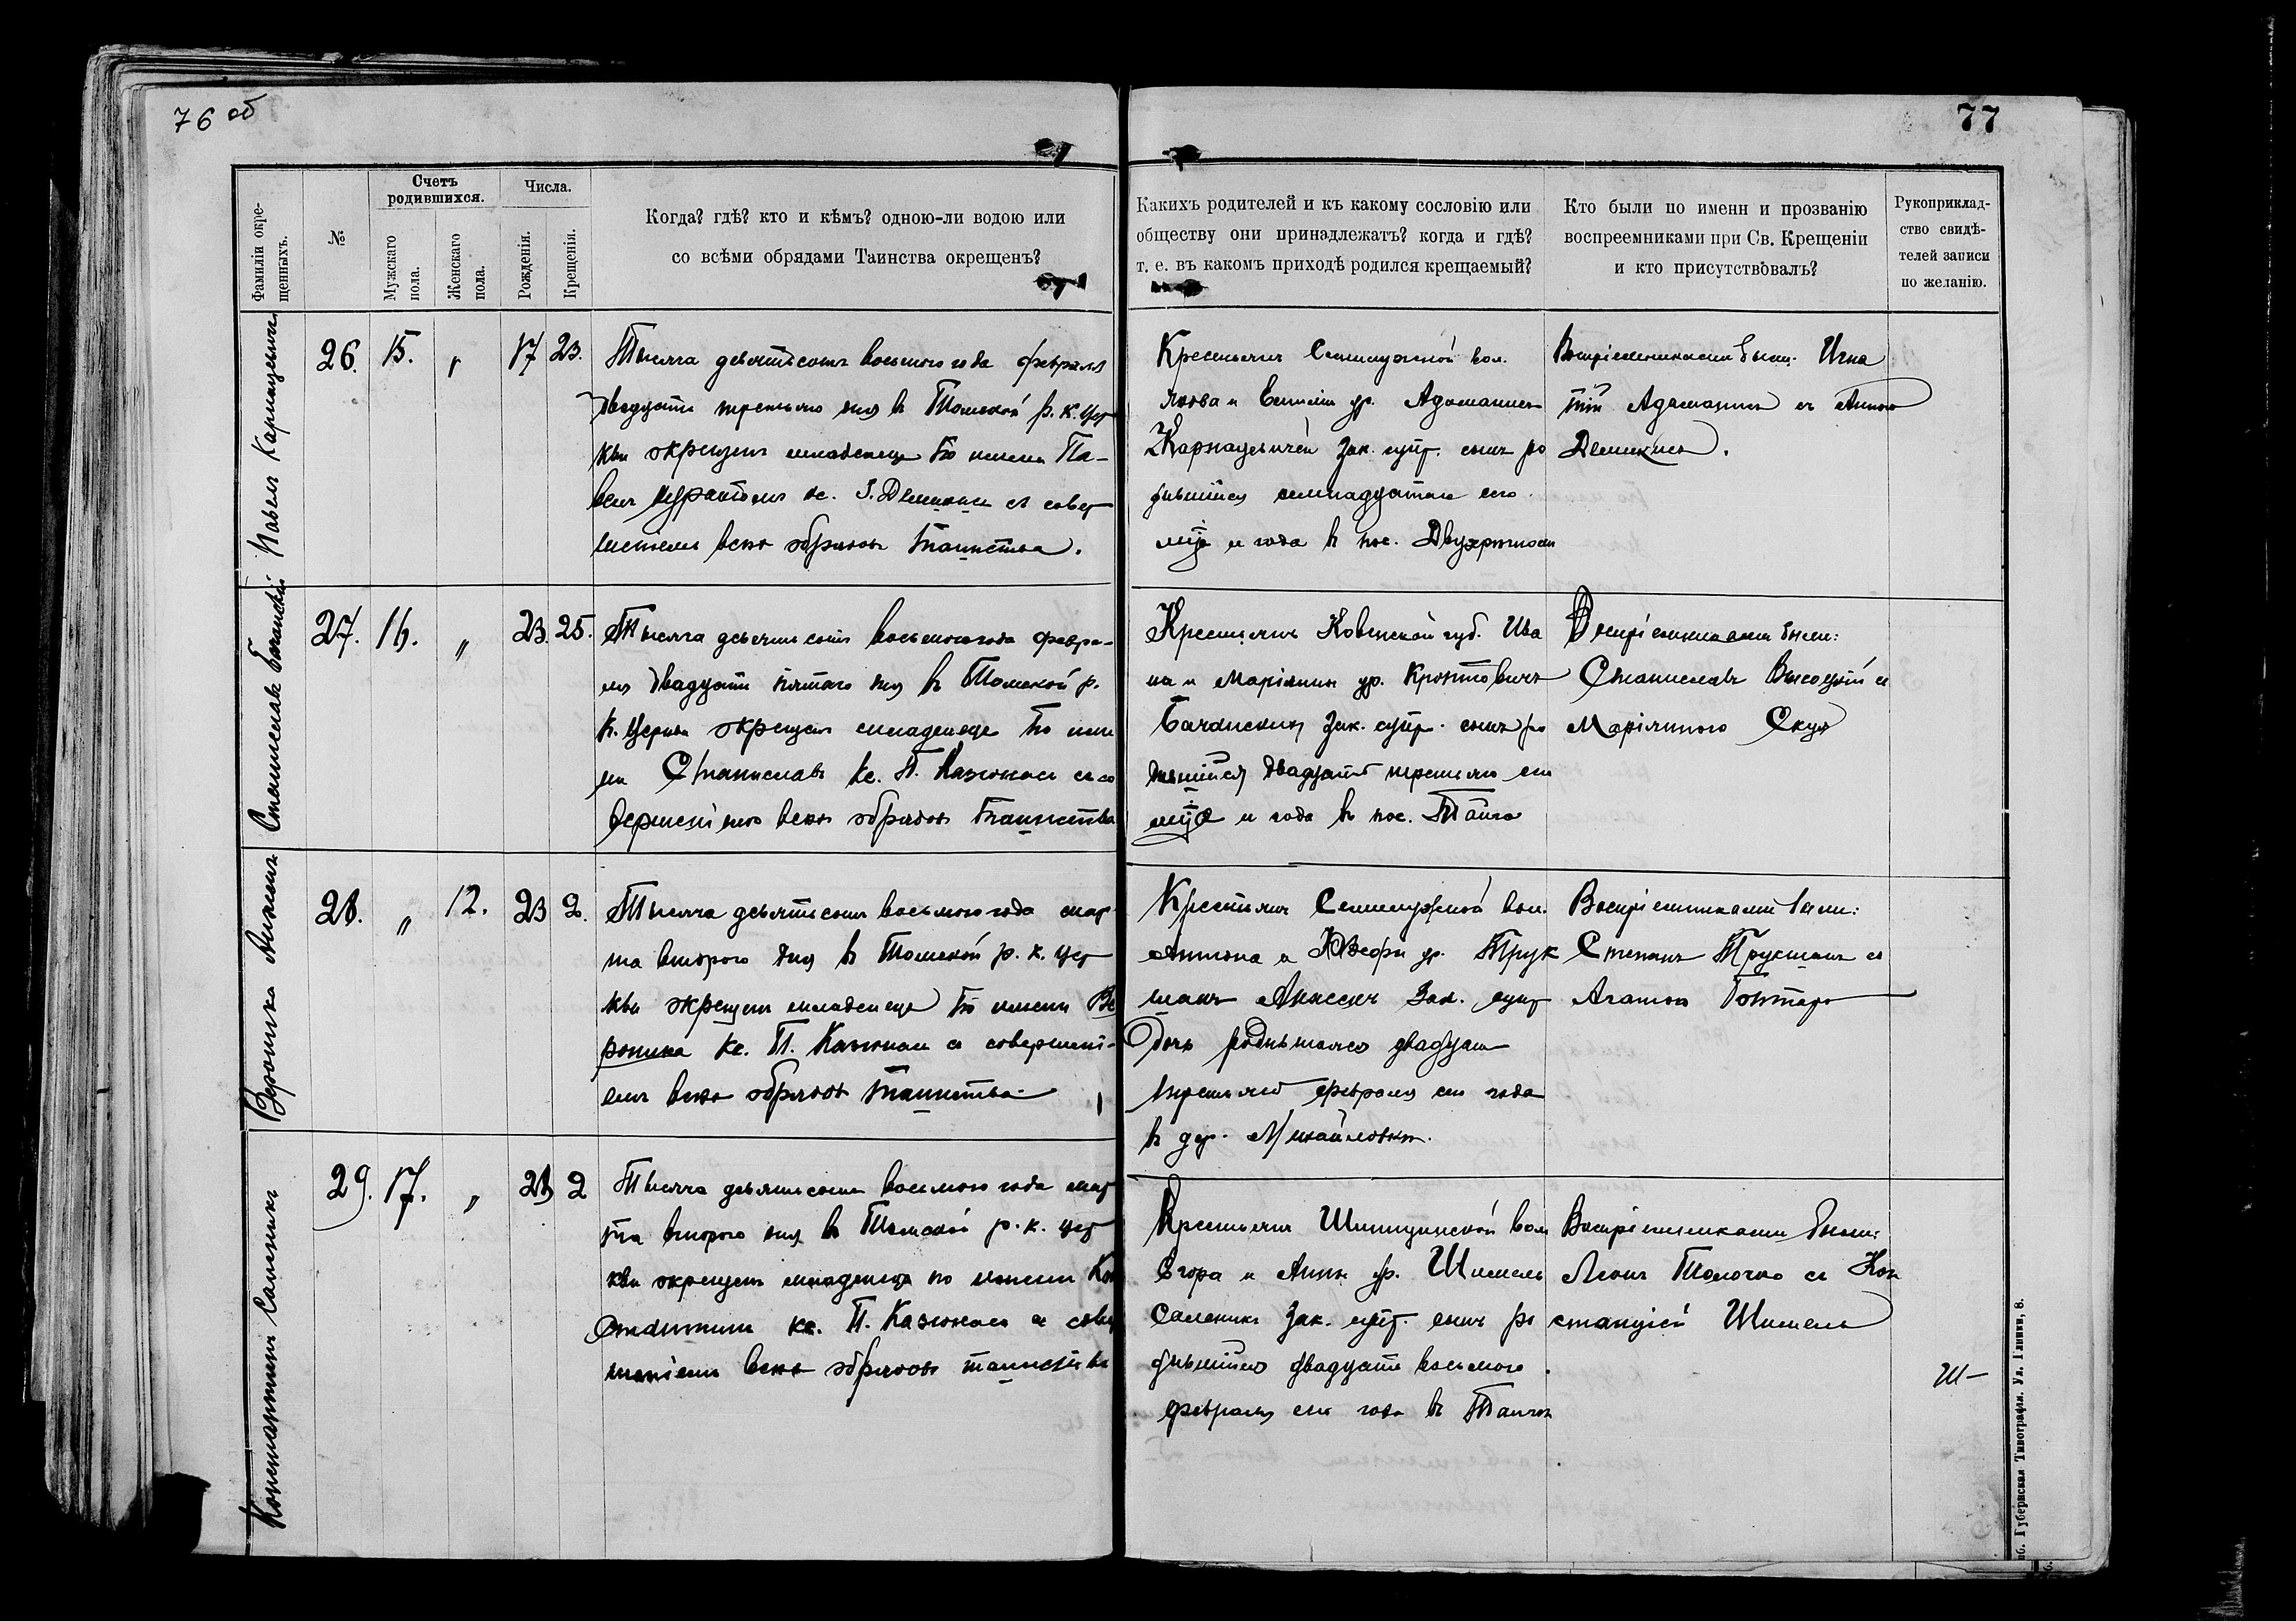 76 об
77
Фамиліи окре-
щенныхъ.
№
Счетъ
родившихся.
Мужскаго
пола.
Женскаго
пола.
Числа.
Рожденія.
Крещенія.
Когда? гдѣ? кто и кѣмъ? одною-ли водою или
со всѣми обрядами Таинства окрещенъ?
Какихъ родителей и къ какому сословію или
обществу они принадлежатъ? когда и гдѣ?
т. е. въ какомъ приходѣ родился крещаемый?
Кто были по имени и прозванію
воспреемниками при Св. Крещеніи
и кто присутствовалъ?
Рукоприклад-
ство свидѣ-
телей записи
по желанію.
Павелъ Карнацевичъ
26. 15. „ 17 23.
Тысяча девятьсотъ восьмого года февраля
двадцать третьяго дня въ Томской р. к. цер
кви окрещенъ младенецъ по имени Па-
велъ кс. І. Демикис съ совер
шеніемъ всѣхъ обрядовъ таинства.
Крестьянъ Семилужной вол.
Якова и Емиліи ур. Адамани
Карнацевичей зак. супр. сынъ ро
дившійся семнадцатаго сего
м-ца и года въ пос. Двухрѣчномъ
Воспріемниками были: Игна
тій Адаманис съ Анною
Демикис.
Станиславъ Бачанскій
27. 16. „ 23. 25.
Тысяча девятьсотъ восьмого года февра-
ля двадцать пятаго дня въ Томской р.
к. церкви окрещенъ младенецъ по име
ни Станиславъ кс. П. Казюнасъ съ со
вершеніемъ всѣхъ обрядовъ таинства
Крестьянъ Ковенской губ. Ива
на и Маріанны ур. Кронтовичъ
Бачанскихъ зак. супр. сынъ ро
дившійся двадцать третьяго сего
м-ца и года въ пос. Тайга
Воспріемниками были:
Станиславъ Высоцкій съ
Маріанною Скуя
Вероника Анисенъ
28. „ 12. 23 2.
Тысяча девятьсотъ восьмого года мар
та второго дня въ Томской р. к. цер
кви окрещенъ младенецъ по имени Ве
роника кс. П. Казюнасъ съ совершені-
емъ всѣхъ обрядовъ таинства
Крестьянъ Семилужной вол.
Антона и Юзефы ур. Трук
шанъ Анисенъ зак. супр
дочь родившаяся двадцать
третьяго февраля сего года
въ дер. Михайловкѣ.
Воспріемниками были:
Степанъ Трукшанъ съ
Агатою Гонтаръ
Константинъ Саленикъ
29. 17. „ 28 2
Тысяча девятьсотъ восьмого года мар
та второго дня въ Томской р. к. цер
кви окрещенъ младенецъ по имени Кон
стантинъ кс. П. Казюнасъ съ совер
шеніемъ всѣхъ обрядовъ таинства
Крестьянъ Шиницинской вол
Егора и Анны ур. Шимель
Саленикъ зак. супр. сынъ ро
дившійся двадцать восьмого
февраля сего года въ Тайгѣ
Воспріемниками были:
Леонъ Толочко съ Кон
станціей Шимель
Ш—
Губернская Типографія. Ул. Глинки, 8.